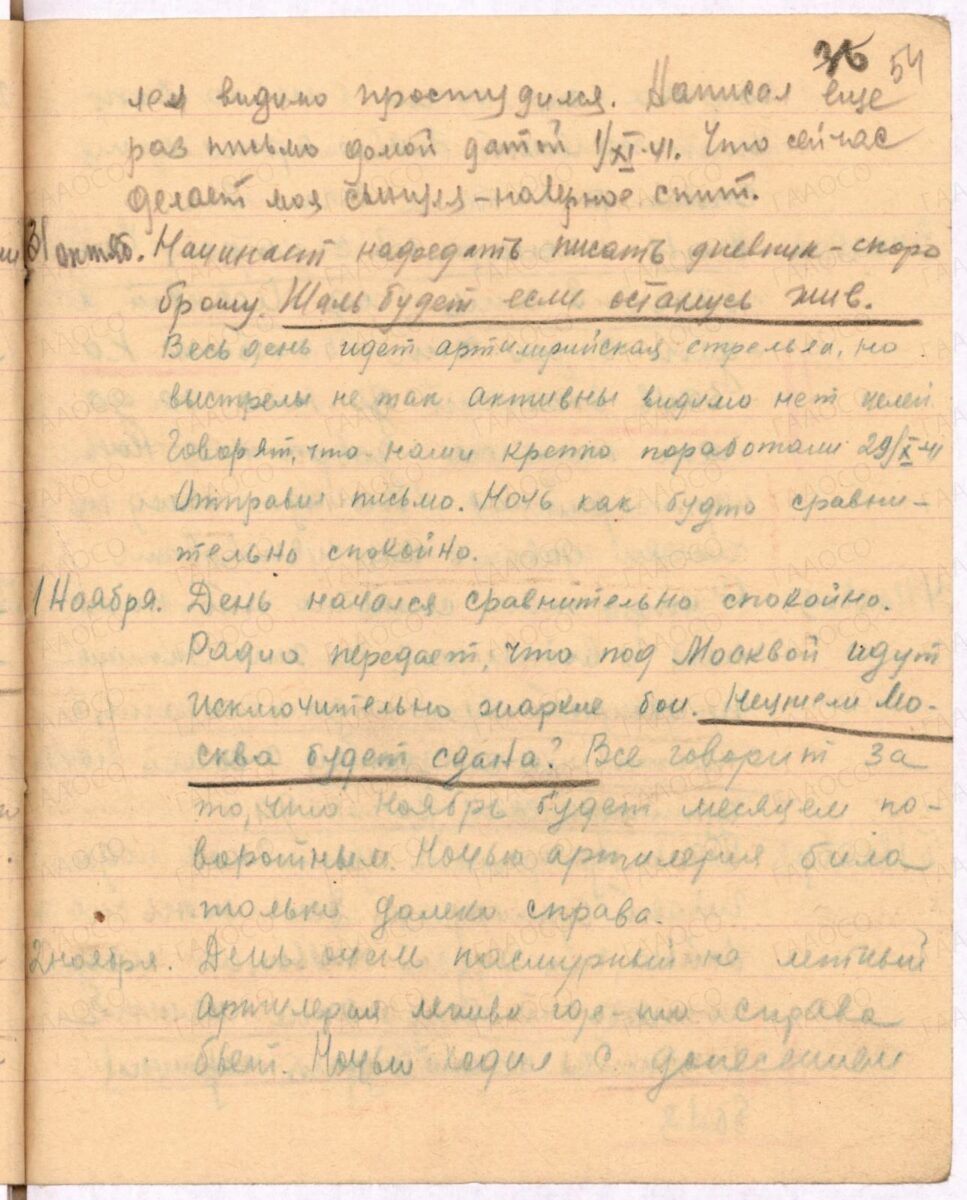 36 54
лел видимо простудился. Написал еще
раз письмо домой датой 1/XI-41. Что сейчас
делает моя – наверное спит.
31 октяб. Начинает надоедать писать дневник – скоро
брошу. Жаль будет если останусь жив.
Весь день идет артилирийская стрельба, но
выстрелы не так активны видимо нет целей
Говорят, что наши крепко поработали 29/X-41
Отправил письмо. Ночь как будто сравни-
тельно спокойно.
1 Ноября. День начался сравнительно спокойно.
Радио передает, что под Москвой идут
исключительно жаркие бои. Неужели Мо-
сква будет сдана? Все говорит за
то, что Ноябрь будет месяцем по-
воротным. Ночью артилерия била
только далеко справа.
2 ноября. День очень пасмурный не летный
артилерия лениво где-то справа
бьет. Ночью ходил с донесением